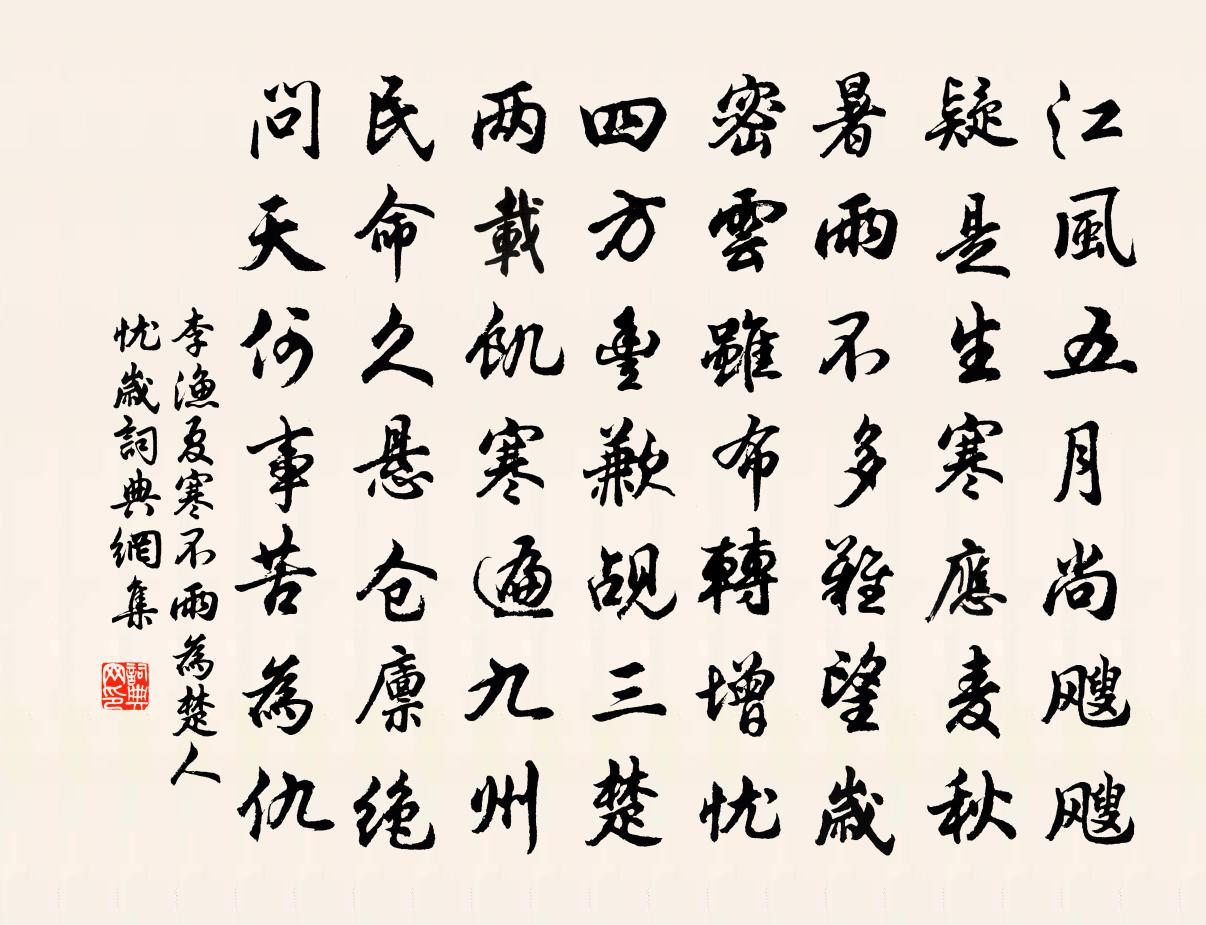 江風五月尚颼颼
疑是生寒應麦秋
暑雨不多難望歲
密雲雖布轉增忧
四方豊歉觇三楚
两載飢寒遍九州
民命久悬仓廪绝
問天何事苦為仇
李漁夏寒不雨為楚人
忧歲詞典網集
詞典
网印